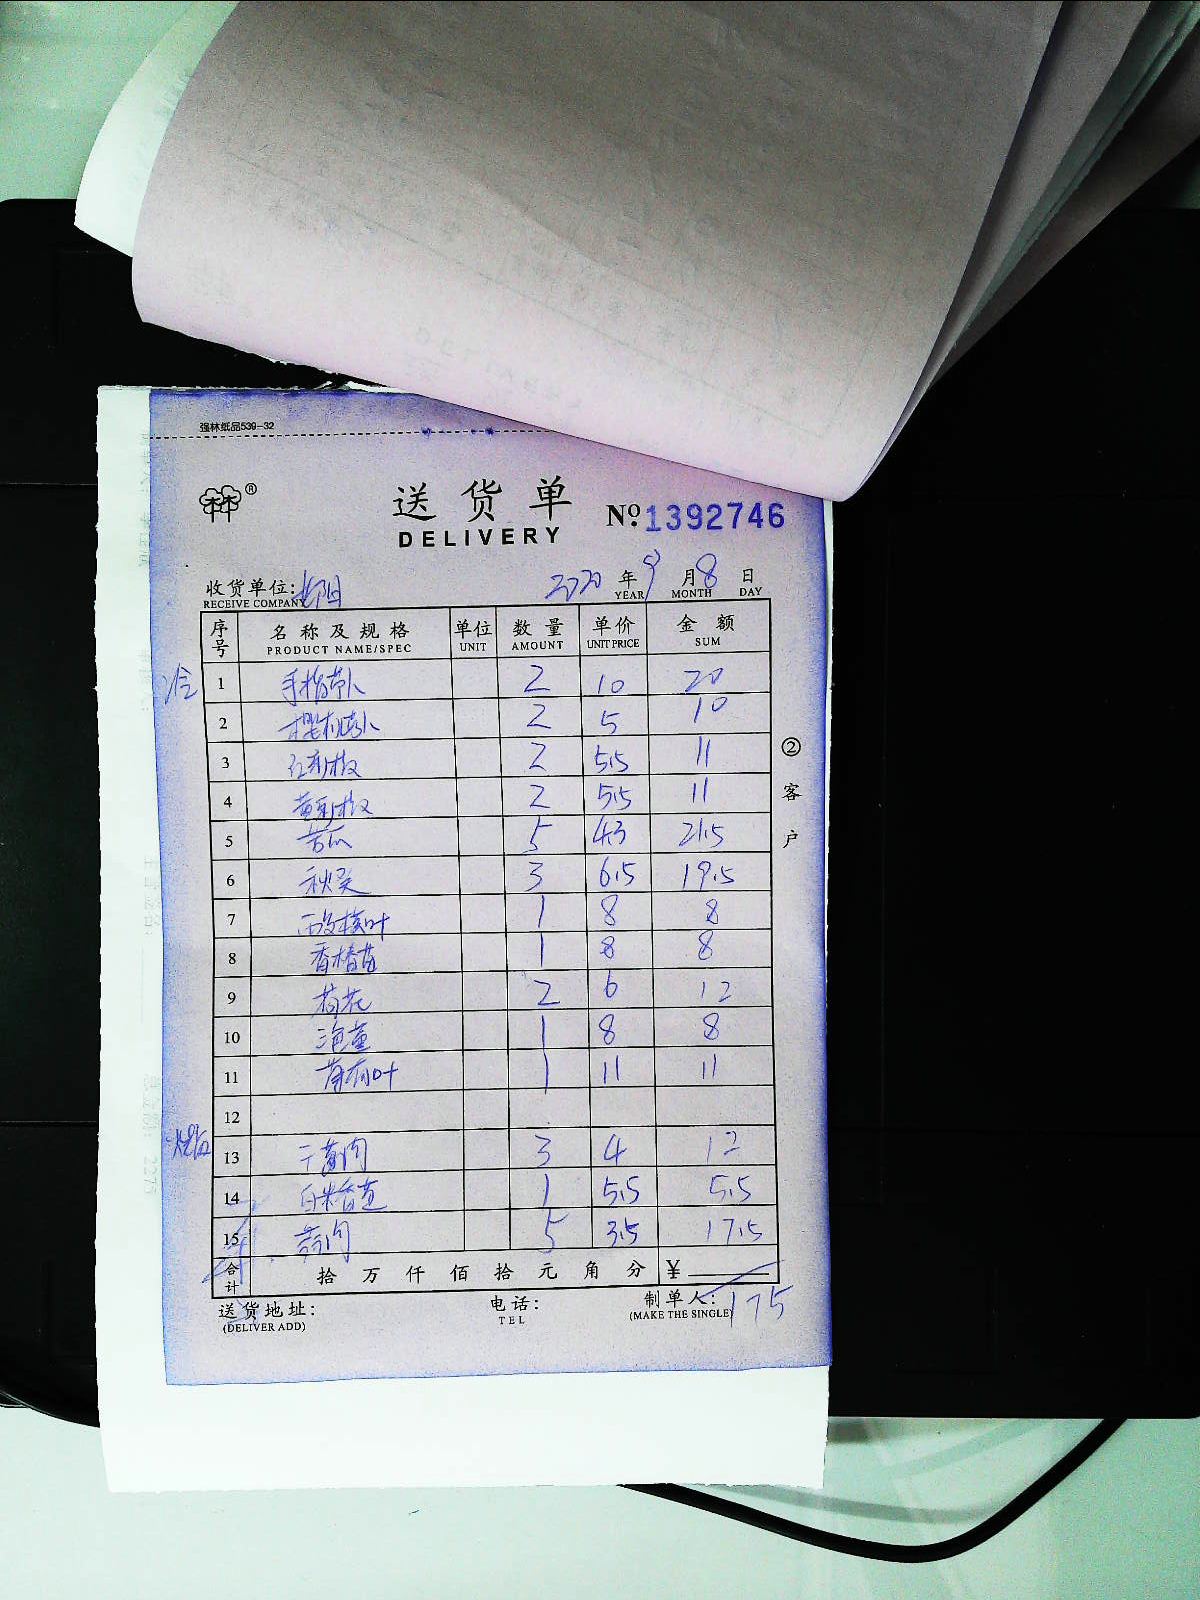 强林纸品539-32
送货单
DELIVERY
№ 1392746
收货单位:
RECEIVE COMPANY
2020 年 9 月 8 日
YEAR MONTH DAY
序号 名称及规格 单位 数量 单价 金额
PRODUCT NAME/SPEC UNIT AMOUNT UNIT PRICE SUM
1 手指萝卜 2 10 20
2 樱桃萝卜 2 5 10
3 红彩椒 2 5.5 11
4 黄彩椒 2 5.5 11
5 苦瓜 5 4.3 21.5
6 秋葵 3 6.5 19.5
7 1 8 8
8 香椿苗 1 8 8
9 荷花 2 6 12
10 1 8 8
11 1 11 11
12
13 3 4 12
14 1 5.5 5.5
15 5 3.5 17.5
合计 拾万仟佰拾元角分 ¥
175
送货地址: 电话: 制单人:
(DELIVER ADD) TEL (MAKE THE SINGLE)
② 客户